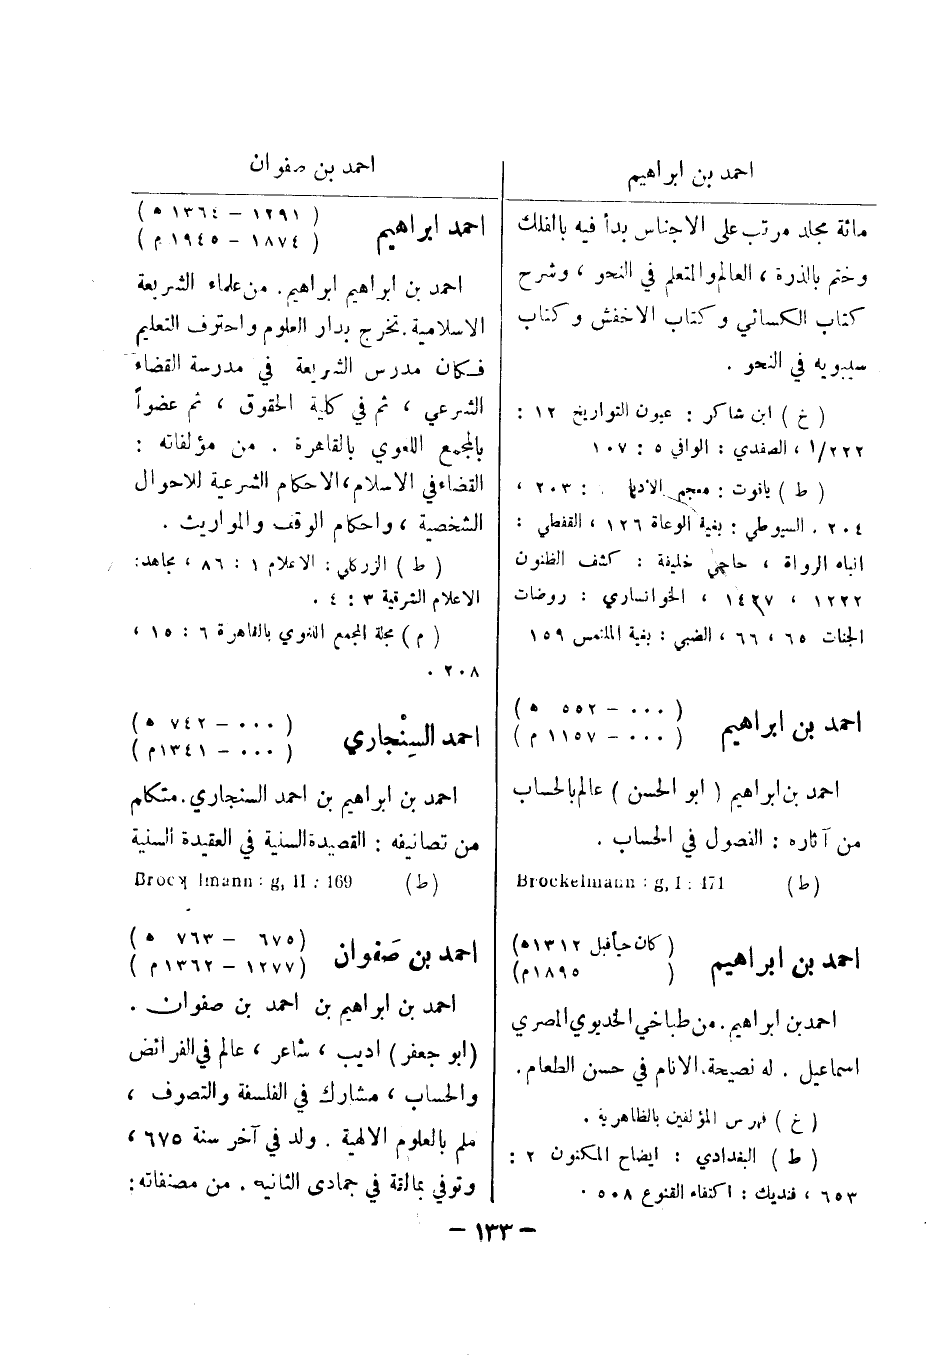 احمد بن ابراهيم
مائة مجلد مرتب على الاجناس بدأ فيه بالفلك
وختم بالذرة ، العالم والمتعلم في النحو ، وشرح
كتاب الكسائي وكتاب الاخفش وكتاب
سيبويه في النحو .
( خ ) ابن شاكر : عيون التواريخ ١٢ :
٢٢٢/١ ، الصفدي : الوافي ٥ : ١٠٧
( ط ) ياقوت : معجم الادبا : ٢٠٣ ،
٢٠٤ . السيوطي : بغية الوعاة ١٢٦ ، القفطي :
انباه الرواة ، حاجي خليفة : كشف الظنون
١٢٢٢ ، ١٤٢٧ ، الخوانساري : روضات
الجنات ٦٥ ، ٦٦ ، الضبي : بغية الملتمس ١٥٩
احمد بن ابراهيم ( ٠٠٠ – ٥٥٢ ه )
( ٠٠٠ – ١١٥٧ م )
احمد بن ابراهيم ( ابو الحسن ) عالم بالحساب
من آثاره : الفصول في الحساب .
(ط) Brockelmann : g, I : 471
احمد بن ابراهيم ( كان حيا قبل ١٣١٢ه )
( ١٨٩٥م )
احمد بن ابراهيم . من طباخي الخديوي المصري
اسماعيل . له نصيحة الانام في حسن الطعام .
( خ ) فهرس المؤلفين بالظاهرية .
( ط ) البغدادي : ايضاح المكنون ٢ :
٦٥٣ ، فنديك : اكتفاء القنوع ٥٠٨ .
احمد بن صفوان
احمد ابراهيم ( ١٢٩١ – ١٣٦٤ ه )
( ١٨٧٤ – ١٩٤٥ م )
احمد بن ابراهيم ابراهيم . من علماء الشريعة
الاسلامية . تخرج بدار العلوم واحترف التعليم
فكان مدرس الشريعة في مدرسة القضاء
الشرعي ، ثم في كلية الحقوق ، ثم عضواً
بالمجمع اللغوي بالقاهرة . من مؤلفاته :
القضاء في الاسلام ، الاحكام الشرعية للاحوال
الشخصية ، واحكام الوقف والمواريث .
( ط ) الزركلي : الاعلام ١ : ٨٦ ، مجاهد :
الاعلام الشرقية ٣ : ٤ .
( م ) مجلة المجمع اللغوي بالقاهرة ٦ : ١٥ ،
٢٠٨ .
احمد السِنْجاري ( ٠٠٠ – ٧٤٢ ه )
( ٠٠٠ – ١٣٤١م )
احمد بن ابراهيم بن احمد السنجاري . متكلم
من تصانيفه : القصيدة السنية في العقيدة السنية
(ط) Brockelmann : g, II : 169
احمد بن صَفوان ( ٦٧٥ – ٧٦٣ ه )
( ١٢٧٧ – ١٣٦٢ م )
احمد بن ابراهيم بن احمد بن صفوان .
(ابو جعفر) اديب ، شاعر ، عالم في الفرائض
والحساب ، مشارك في الفلسفة والتصوف ،
ملم بالعلوم الالهية . ولد في آخر سنة ٦٧٥ ،
وتوفي بمالقة في جمادى الثانيه . من مصنفاته :
– ١٣٣ –